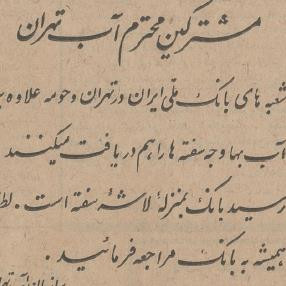 مشترکین محترم آب تهران
شعبه های بانک ملی ایران در تهران و حومه علاوه بر
آب بها وجه سفته ها را هم دریافت میکنند
رسید بانک بمنزلهٔ لاشهٔ سفته است . لطفاً
همیشه به بانک مراجعه فرمائید .